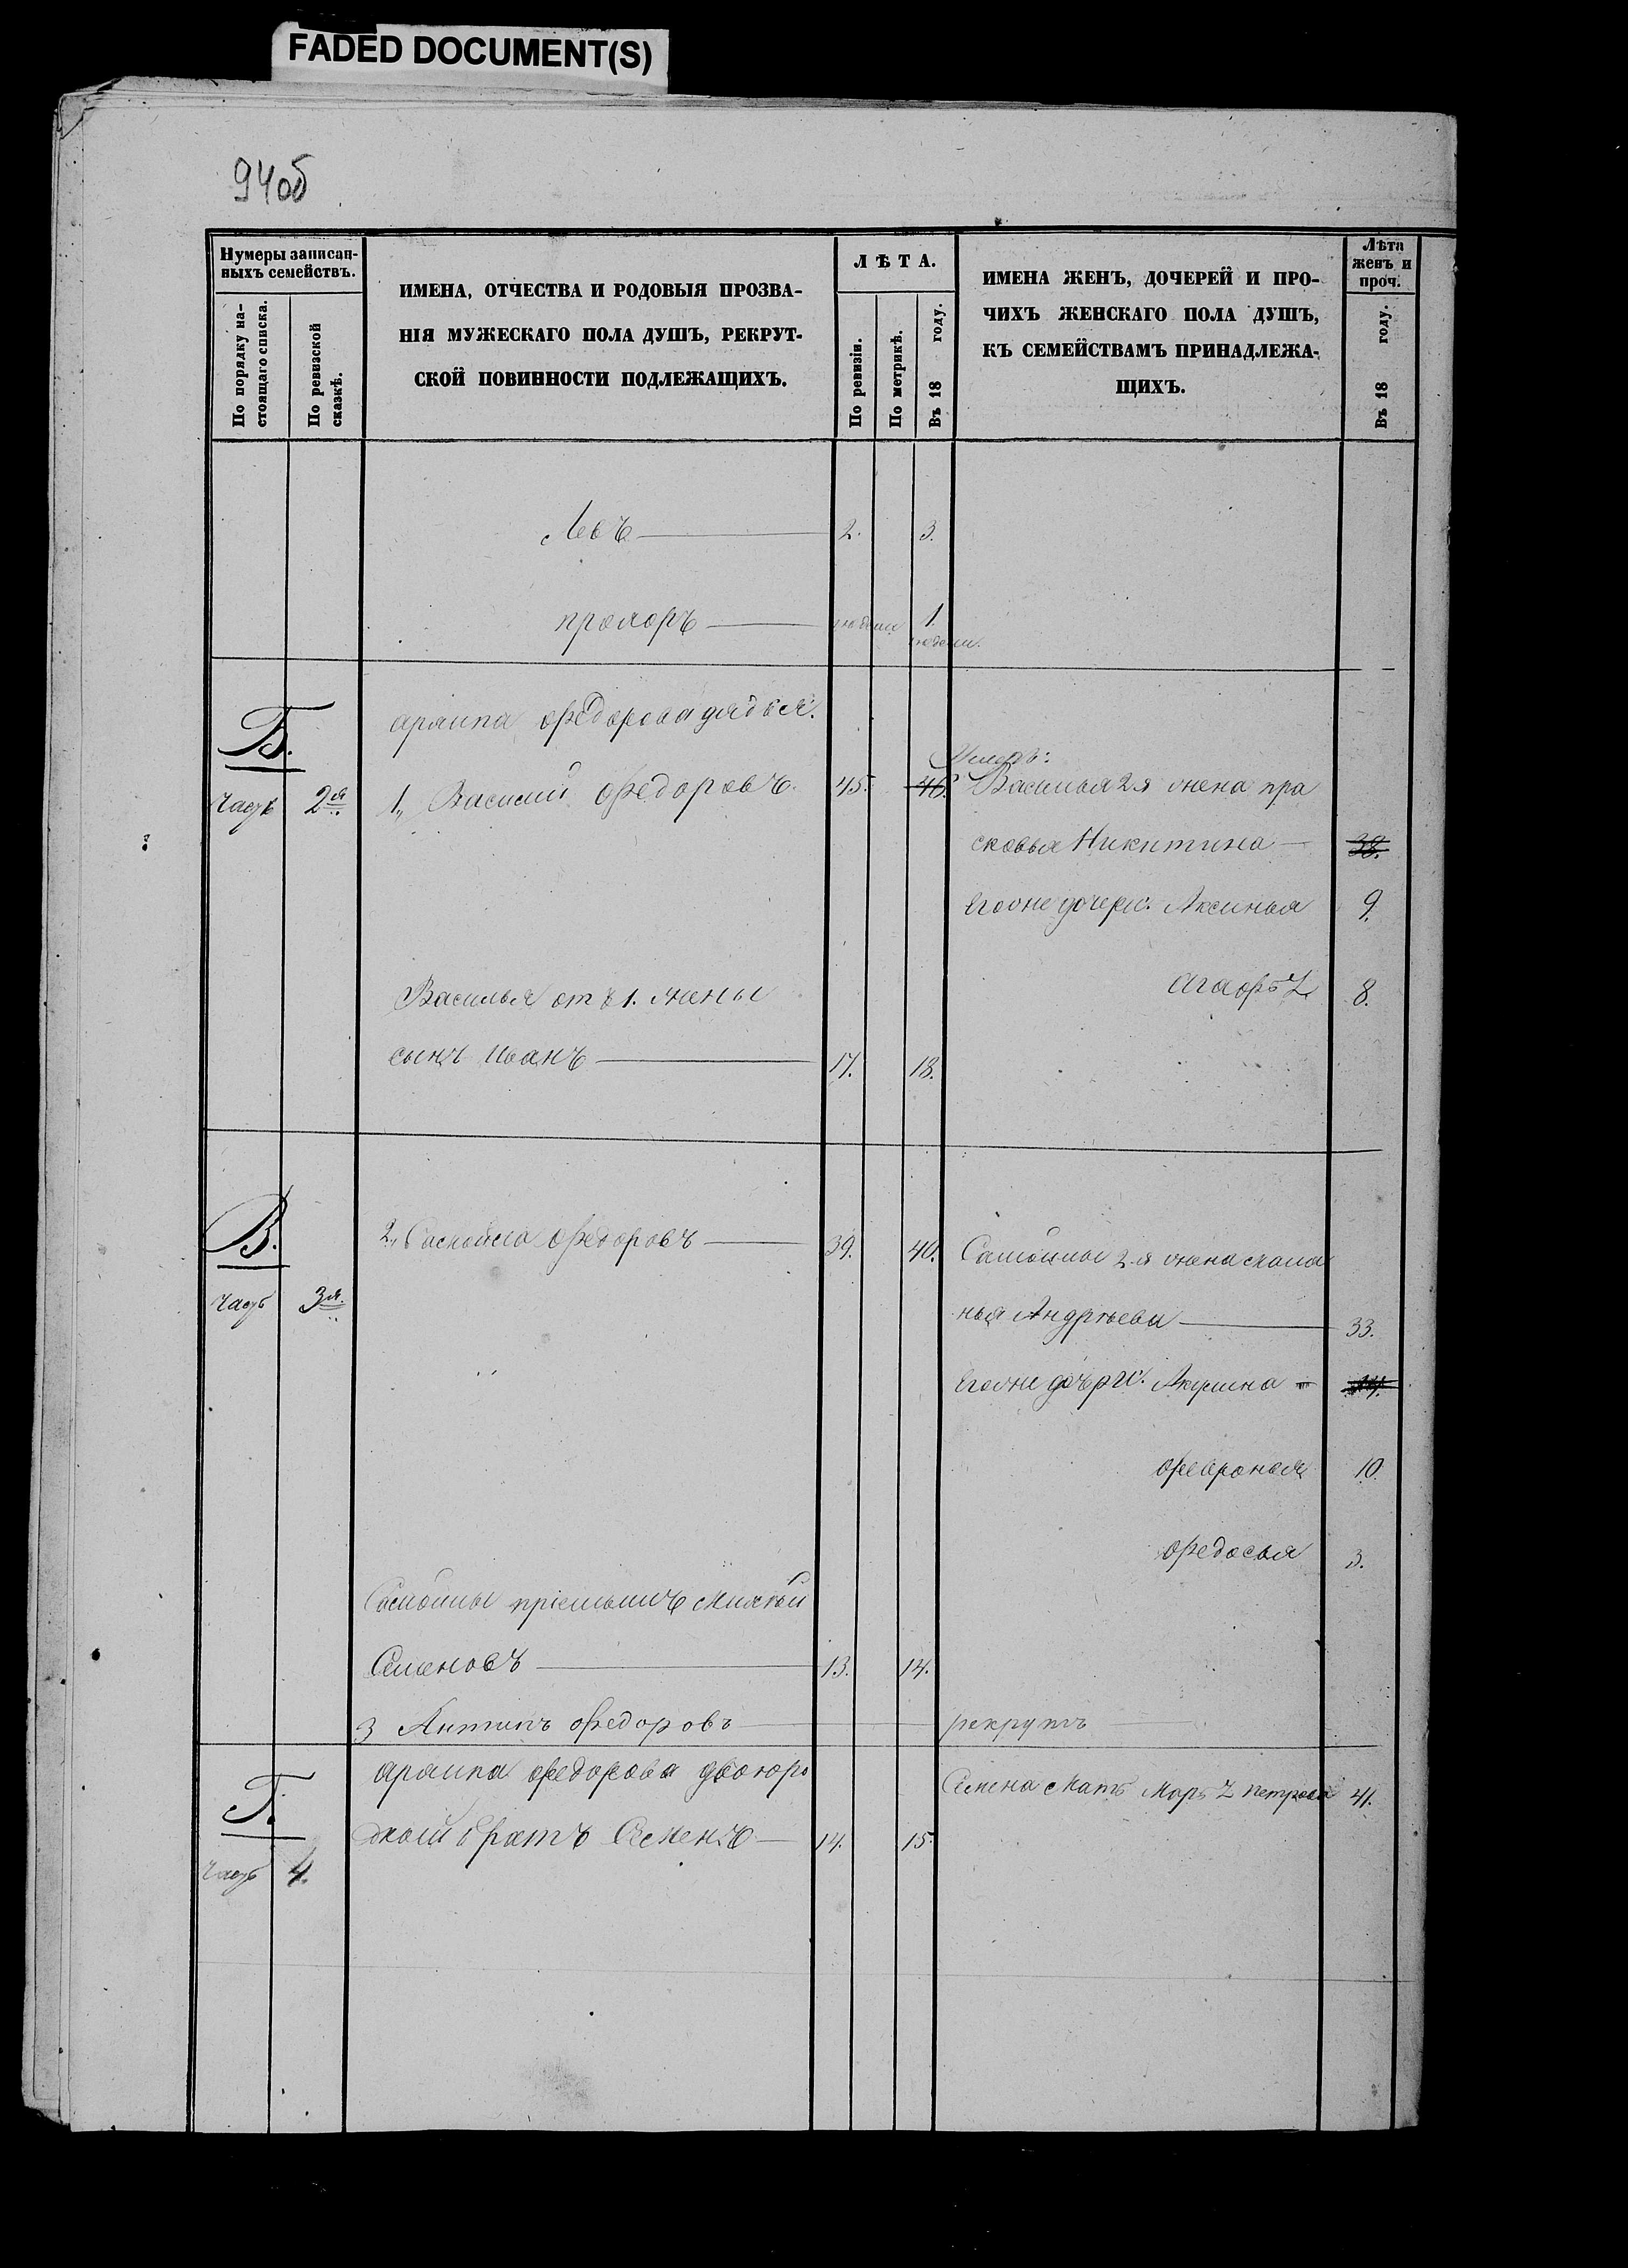 FADED DOCUMENT(S)
94об
Нумеры записан-
ныхъ семействъ.
По порядку на-
стоящаго списка.
По ревизской
сказкѣ.
ИМЕНА, ОТЧЕСТВА И РОДОВЫЯ ПРОЗВА-
НІЯ МУЖЕСКАГО ПОЛА ДУШЪ, РЕКРУТ-
СКОЙ ПОВИННОСТИ ПОДЛЕЖАЩИХЪ.
ЛѢТА.
По ревизіи.
По метрикѣ.
Въ 18 году.
ИМЕНА ЖЕНЪ, ДОЧЕРЕЙ И ПРО-
ЧИХЪ ЖЕНСКАГО ПОЛА ДУШЪ,
КЪ СЕМЕЙСТВАМЪ ПРИНАДЛЕЖА-
ЩИХЪ.
Лѣта
женъ и
проч.
Въ 18 году.
Левъ 2. 3.
прохоръ 1.
Б.
Федорова дядья.
часть 2я 1, Василий Федоровъ 45. 46. Василья 2я жена пра
сковья Никитина 38.
Его дочери: Аксинья 9.
Агафья 8.
Василья отъ 1. жены
сынъ Иванъ 17. 18.
В.
2, Самойла Федоровъ 39. 40. Самойлы 2-я жена мала
нья Андреева 33.
часть 3я.
Его дочери: Акулина
Февронья 10.
Федосья 3.
Самойлы приемышъ
Семеновъ 13. 14.
3 Антипъ Федоровъ рекрутъ
Г.
Федорова двоюро
дной братъ Семенъ 14. 15.
Семена мать Марья петрова 41.
часть 4.